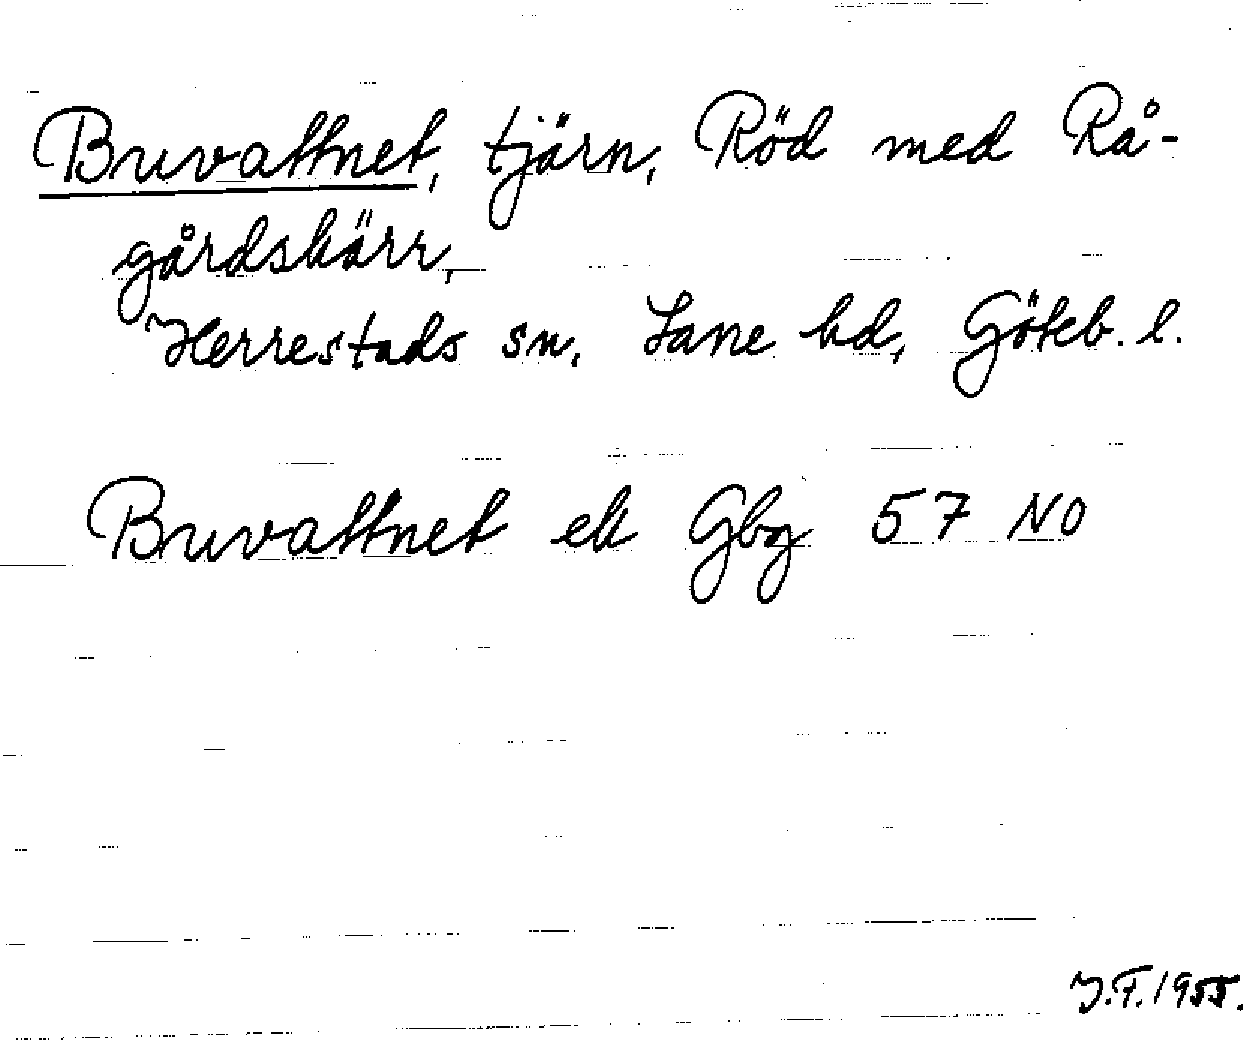 Buvattnet, tjärn, Röd med Rå-
gårdskärr,
Herrestads sn, Lane hd, Göteb. l.
Buvattnet ek Gbg 57 NO
J.F. 1955.